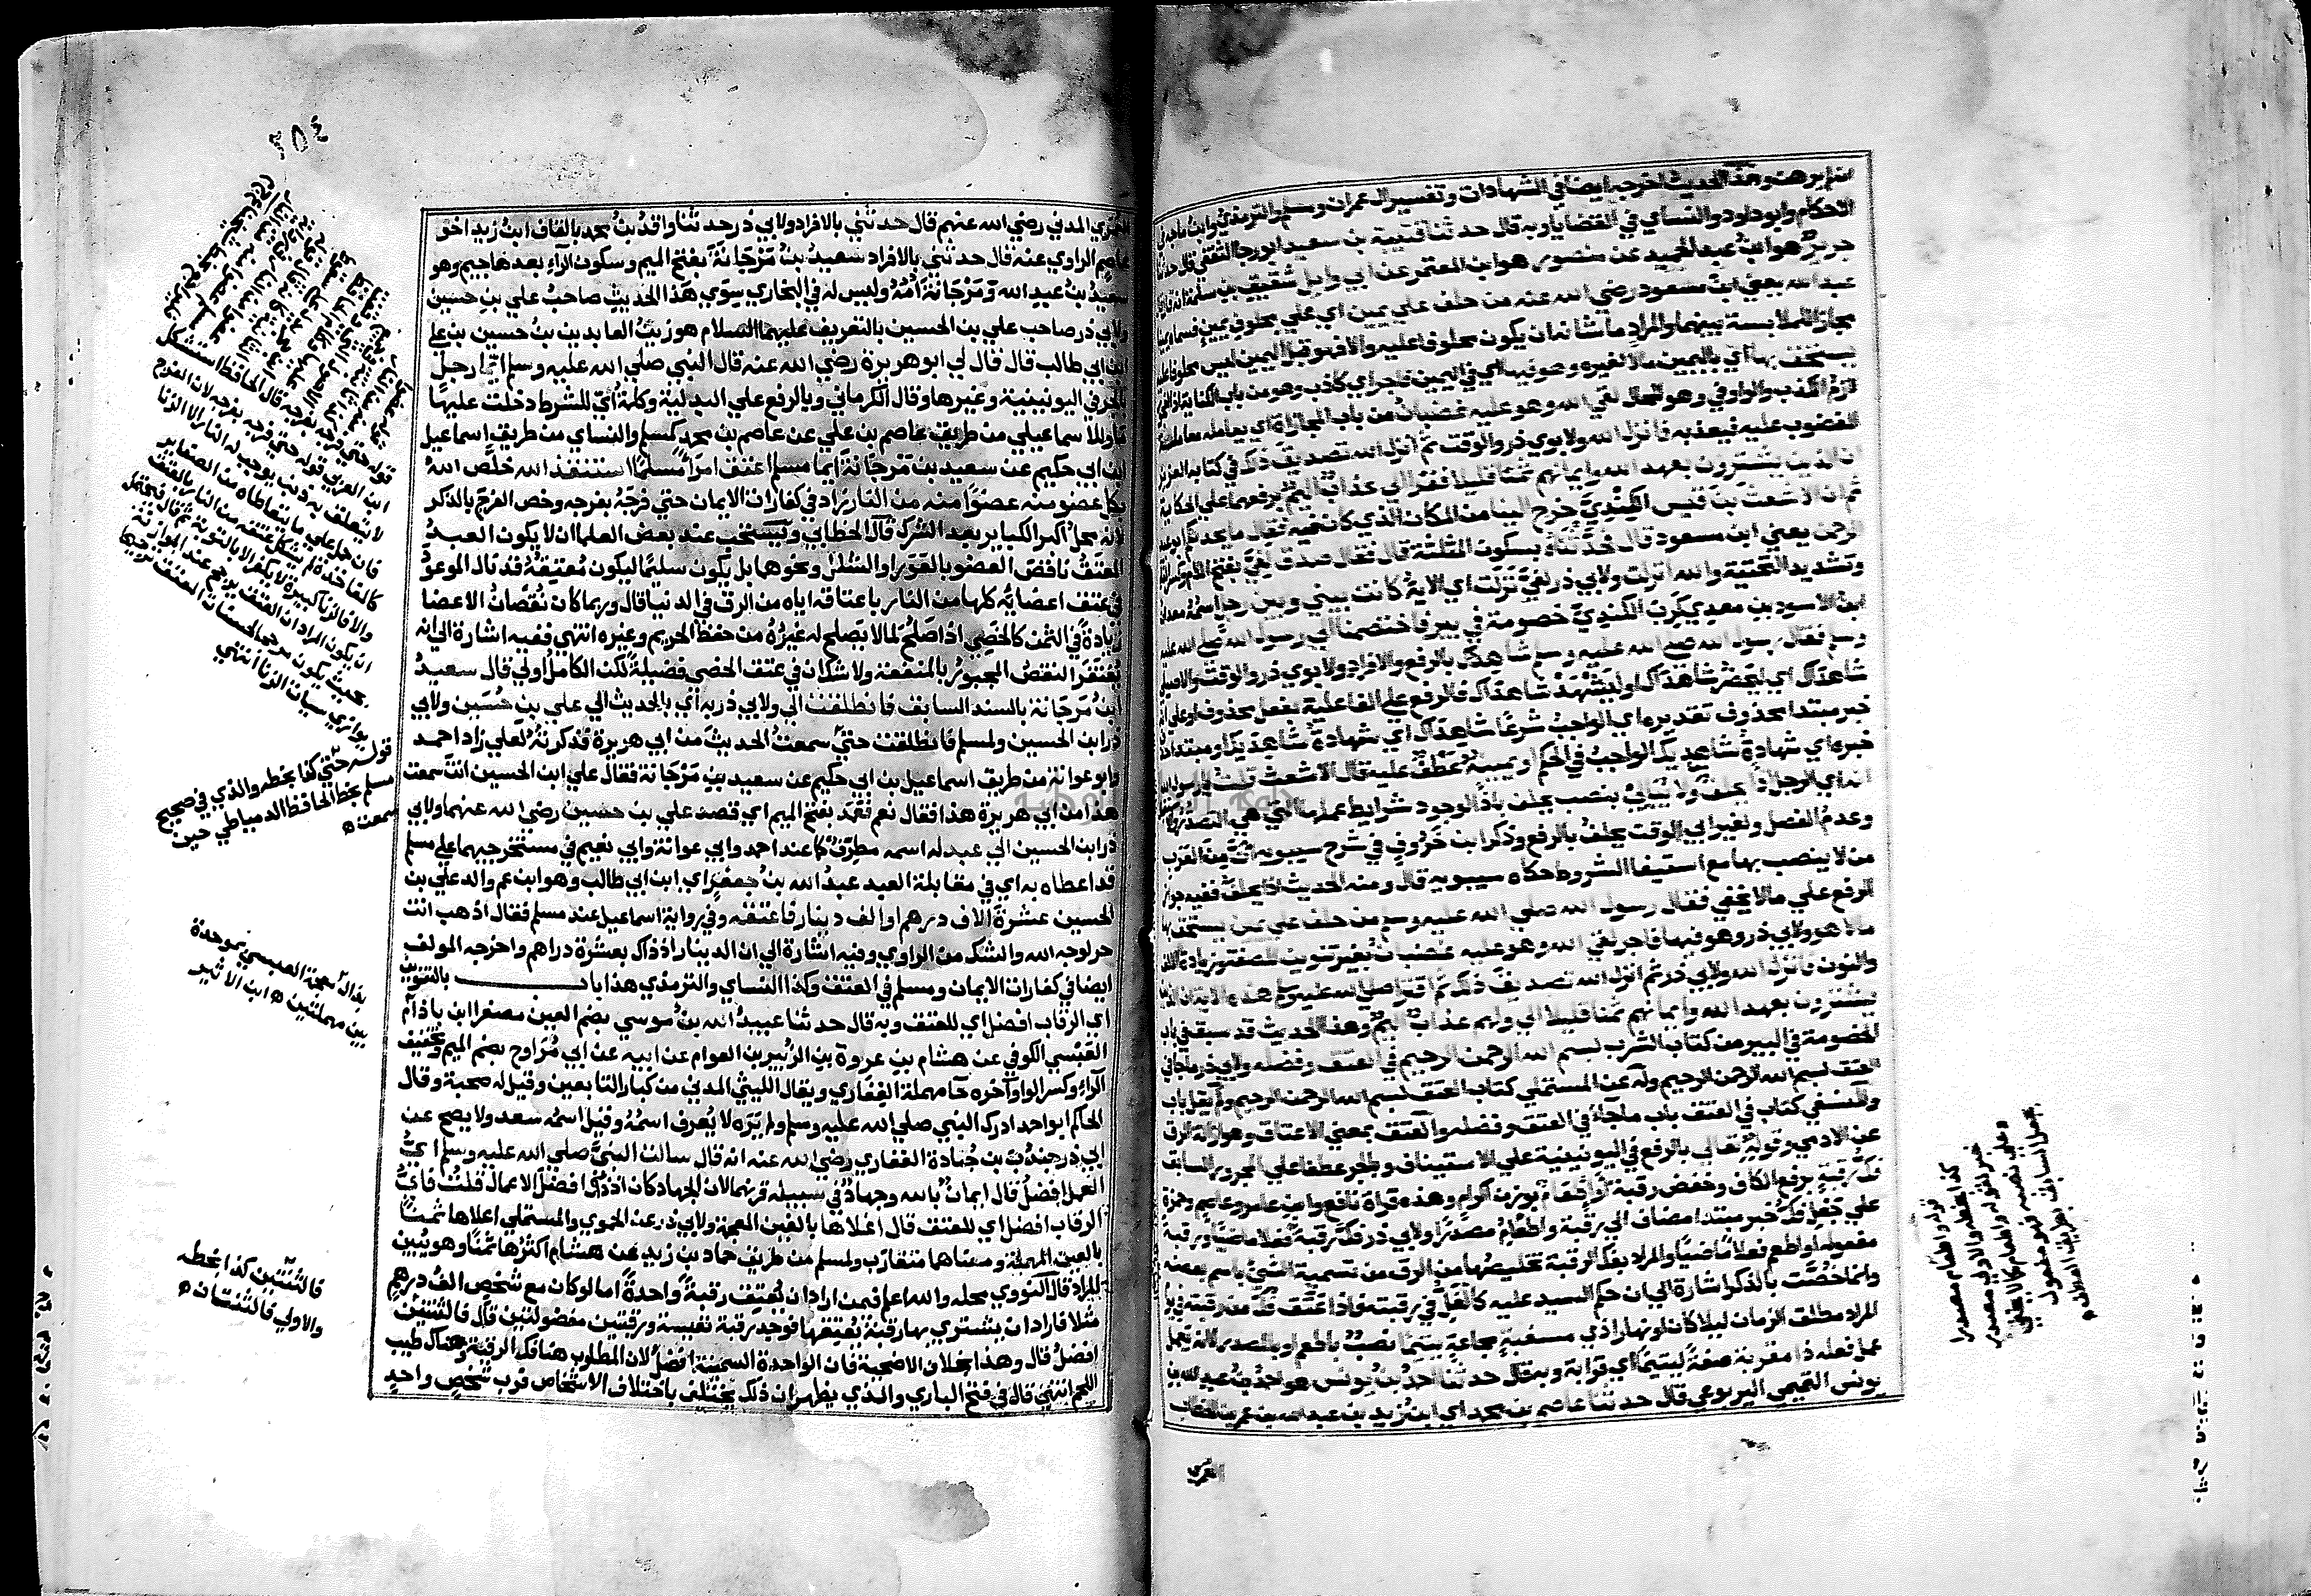 لم يرهن وهذا الحديث اخرجه ايضا في الشهادات وتفسير ال عمران ومسلم والترمذي وابن ماجه في
الاحكام وابو داود والنساي في القضايا وبه قال حدثنا قتيبة بن سعيد ابو رجا الثقفي قال حدثنا
جرير هو ابن عبد الحميد عن منصور هو ابن المعتمر عن ابي وايل شقيق بن سلمة انه قال قال
عبد الله يعني ابن مسعود رضي الله عنه من حلف علي يمين اي علي محلوف يمين
مجازا للملابسة بينهما والمراد ما شانه ان يكون محلوفا عليه والا فهو قبل اليمين ليس محلوفا عليه
يستحق بها اي باليمين مالا لغيره وهو فيها اي في اليمين فاجر اي كاذب وهو من باب الكناية
لزم الكذب والواو في وهو للحال لقي الله وهو عليه غضبان من باب المجازاة اي يعامله معاملة
المغضوب عليه فيعذبه فانزل الله ولابوي ذر والوقت ثم انزل الله تصديق ذلك في كتابه العزيز
ان الذين يشترون بعهد الله وايمانهم ثمنا قليلا فقرا الي عذاب اليم برفعهما علي الحكاية
ثم ان الاشعث بن قيس الكندي خرج الينا من المكان الذي كان فيه فقال ما يحدثكم ابو عبد
الرحمن يعني ابن مسعود قال فحدثناه بسكون المثلثة قال فقال صدق لفي بفتح اللام وكسر الفا
وتشديد التحتية والله انزلت ولابي ذر لفي نزلت اي الاية كانت بيني وبين رجل اسمه معدان
ابن الاسود بن معدي كرب الكندي خصومة في بير فاختصمنا الي رسول الله صلي الله عليه
وسلم فقال رسول الله صلي الله عليه وسلم شاهدك بالرفع والافراد ولابوي ذر والوقت والاصيلي
شاهداك اي ليحضر شاهداك او ليشهد شاهداك فالرفع علي الفاعلية بفعل محذوف او علي انه
خبر مبتدا محذوف تقديره اي الواجب شرعا شاهداك اي شهادة شاهديك او مبتدا حذف
خبره اي شهادة شاهديك الواجب في الحكم او يمينه عطف عليه قال الاشعث قلت يا رسول الله
انه اي الرجل اذا يحلف ولا يبالي بنصب يحلف باذا لوجود شرايط عملها التي هي التصدر
وعدم الفصل ولغير ابي الوقت يحلف بالرفع وذكر ابن خروف في شرح سيبويه ان من العرب
من لا ينصب بها مع استيفا الشروط حكاه سيبويه قال ومنه الحديث اذا يحلف ففيه جواز
الرفع علي ما لا يخفي فقال رسول الله صلي الله عليه وسلم من حلف علي يمين يستحق بها
مالا هو ولابي ذر وهو فيها فاجر لقي الله وهو عليه غضبان بغير تنوين للصفة وزيادة الالف
والنون فانزل الله ولابي ذر ثم انزل الله تصديق ذلك ثم اقترا صلي الله عليه وسلم هذه الاية ان الذين
يشترون بعهد الله وايمانهم ثمنا قليلا الي ولهم عذاب اليم وهذا الحديث قد سبق في باب
الخصومة في البير من كتاب الشرب بسم الله الرحمن الرحيم في العتق وفضله ولابي ذر ما جا في
العتق بسم الله الرحمن الرحيم وله عن المستملي كتاب العتق بسم الله الرحمن الرحيم ولم يقل باب
وللنسفي كتاب في العتق باب ما جاء في العتق وفضله والعتق بمعني الاعتاق وهو ازالة الرق
عن الادمي وقوله تعالي بالرفع في اليونينية علي الاستيناف وبالجر عطفا علي المجرور السابق
فك رقبة برفع الكاف وخفض رقبة او اطعام بوزن اكرام وهذه قراة نافع وابن عامر وعاصم وحمزة
علي جعل فك خبر مبتدا مضاف الي رقبة واطعام مصدرا ولابي ذر فك رقبة فعلا ماضيا ورقبة
مفعوله او اطعم فعلا ماضيا والمراد بفك الرقبة تخليصها من الرق من تسمية الشي باسم بعضه
وانما خصت بالذكر اشارة الي ان حكم السيد عليه كالغل في رقبته فاذا عتق فك من رقبته في يوم
المراد مطلق الزمان ليلا كان او نهارا ذي مسغبة مجاعة يتيما نصب باطعم او بالمصدر لانه يعمل
عمل فعله ذا مقربة صفة ليتيما اي قرابة وبه قال حدثنا احمد بن يونس هو احمد بن عبد الله بن
يونس التميمي اليربوعي قال حدثنا عاصم بن محمد اي ابن زيد بن عبد الله بن عمر بن الخطاب
العمري
قوله واطعام مصدرا
كذا بخطه والاولي مصدر
خبر لقوله واطعام كما لا يخفي
وعلي نصبه فهو مفعول
لجعل السابق بطريق العطف ه
العمري المدني رضي الله عنهم قال حدثني بالافراد ولابي ذر حدثنا واقد بن محمد بالقاف ابن زيد اخو
عاصم الراوي عنه قال حدثني بالافراد سعيد بن مرجانة بفتح الميم وسكون الرآء بعدها جيم وهو
سعيد بن عبد الله ومرجانة امه وليس له في البخاري سوي هذا الحديث صاحب علي بن حسين
ولابي ذر صاحب علي بن الحسين بالتعريف عليهما السلام هو زين العابدين بن حسين بن علي
ابن ابي طالب قال قال لي ابو هريرة رضي الله عنه قال النبي صلي الله عليه وسلم ايما رجل
بالجر في اليونينية وغيرها وقال الكرماني وبالرفع علي البدلية وكلمة اي للشرط دخلت عليها
ما وللاسماعيلي من طريق عاصم بن علي عن عاصم بن محمد كمسلم والنساي من طريق اسماعيل
ابن ابي حكيم عن سعيد بن مرجانة ايما مسلم اعتق امرا مسلما استنقذ الله خلص الله
بكل عضو منه عضوا منه من النار زاد في كفارات الايمان حتي فرجه بفرجه وخص الفرج بالذكر
لانه محل اكبر الكباير بعد الشرك قال الخطابي ويستحب عند بعض العلما ان لا يكون العبد
المعتق ناقص العضو بالعور او الشلل ونحوهما بل يكون سليما ليكون معتقه قد نال الموعود
في عتق اعضايه كلها من النار باعتاقه اياه من الرق في الدنيا قال وربما كان نقصان الاعضا
زيادة في الثمن كالخصي اذا صلح لما لا يصلح له غيره من حفظ الحريم وغيره انتهي ففيه اشارة الي انه
يغتفر النقص المجبور بالمنفعة ولا شك ان في عتق الخصي فضيلة لكن الكامل اولي قال سعيد
ابن مرجانة بالسند السابق فانطلقت الي ولابي ذر به اي بالحديث الي علي بن حسين ولابي
ذر ابن الحسين ولمسلم فانطلقت حتي سمعت الحديث من ابي هريرة فذكرته لعلي زاد احمد
وابو عوانة من طريق اسماعيل بن ابي حكيم عن سعيد بن مرجانة فقال علي ابن الحسين انت سمعت
هذا من ابي هريرة هذا فقال نعم فعمد بفتح الميم اي قصد علي بن حسين رضي الله عنهما ولابي
ذر ابن الحسين الي عبد له اسمه مطرف كما عند احمد وابي عوانة وابي نعيم في مستخرجيهما علي مسلم
قد اعطاه به اي في مقابلة العبد عبد الله بن جعفر اي ابن ابي طالب وهو ابن عم والد علي بن
الحسين عشرة الاف درهم او الف دينار فاعتقه وفي رواية اسماعيل عند مسلم فقال اذهب انت
حر لوجه الله والشك من الراوي وفيه اشارة الي ان الدينار اذ ذاك بعشرة دراهم واخرجه المولف
ايضا في كفارات الايمان ومسلم في العتق وكذا النساي والترمذي هذا باب بالتنوين
اي الرقاب افضل اي للعتق وبه قال حدثنا عبيد الله بن موسي بضم العين مصغرا ابن باذام
العبسي الكوفي عن هشام بن عروة بن الزبير بن العوام عن ابيه عن ابي مراوح بضم الميم وتخفيف
الرآء وكسر الواو اخره حا مهملة الغفاري ويقال الليثي المدني من كبار التابعين وقيل له صحبة وقال
الحاكم ابو احمد ادرك النبي صلي الله عليه وسلم ولم يره لا يعرف اسمه وقيل اسمه سعد ولا يصح عن
ابي ذر جندب بن جنادة الغفاري رضي الله عنه انه قال سالت النبي صلي الله عليه وسلم اي
العمل افضل قال ايمان بالله وجهاد في سبيله قرنهما لان الجهاد كان اذ ذاك افضل الاعمال قلت فاي
الرقاب افضل اي للعتق قال اغلاها بالغين المعجمة ولابي ذر عن الحموي والمستملي اعلاها ثمنا
بالعين المهملة ومعناهما متقارب ولمسلم من طريق حماد بن زيد عن هشام اكثرها ثمنا وهو يبين
المراد قال النووي محله والله اعلم فيمن اراد ان يعتق رقبة واحدة اما لو كان مع شخص الف درهم
مثلا فاراد ان يشتري بها رقبة يعتقها فوجد رقبة نفيسة ورقبتين مفضولتين قال فالثنتين
افضل قال وهذا بخلاف الاضحية فان الواحدة السمينة افضل لان المطلوب هنا فك الرقبة وهناك طيب
اللحم انتهي قال في فتح الباري والذي يظهر ان ذلك يختلف باختلاف الاشخاص فرب شخص واحد
٣٥٤
قوله حتي فرجه بفرجه قال الحافظ استشكل
ابن العربي قوله حتي فرجه بفرجه لان الفرج
لا يتعلق به ذنب يوجب له النار الا الزنا
فان حمل علي ما يتعاطاه من الصغاير
كالمفاخذة لم يشكل عتقه من النار بالعتق
والا فالزنا كبيرة لا يكفر الا بالتوبة ثم قال فيحتمل
ان يكون المراد ان العتق يرجح عند الموازنة
بحيث يكون مرجحا لحسنات المعتق ترجيحا
يوازي سيات الزنا انتهي
قوله حتي كذا بخطه والذي في صحيح
مسلم بخط الحافظ الدمياطي حين
سمعت ه
بذال معجمة العبسي بموحدة
بين مهملتين ه ابن الاثير
فالثنتين كذا بخطه
والاولي فالثنتان ه